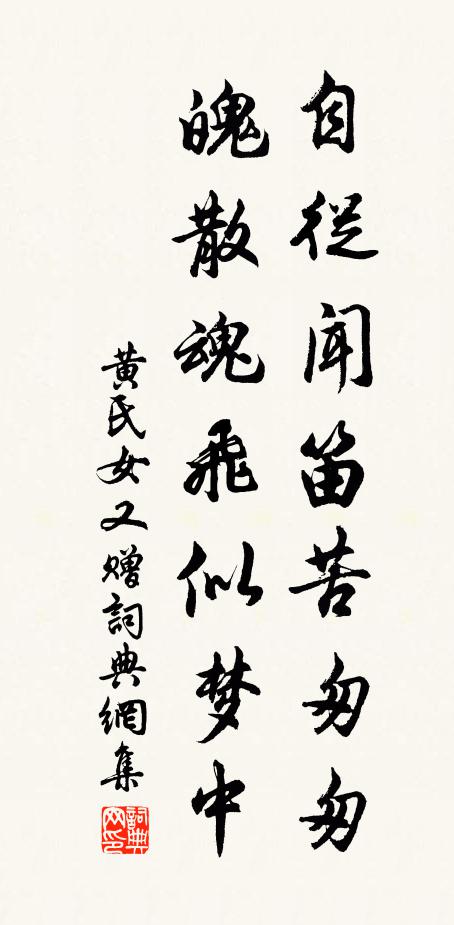 自從闻笛苦匆匆
魄散魂飛似梦中
黄氏女又贈詞典網集
詞典网印